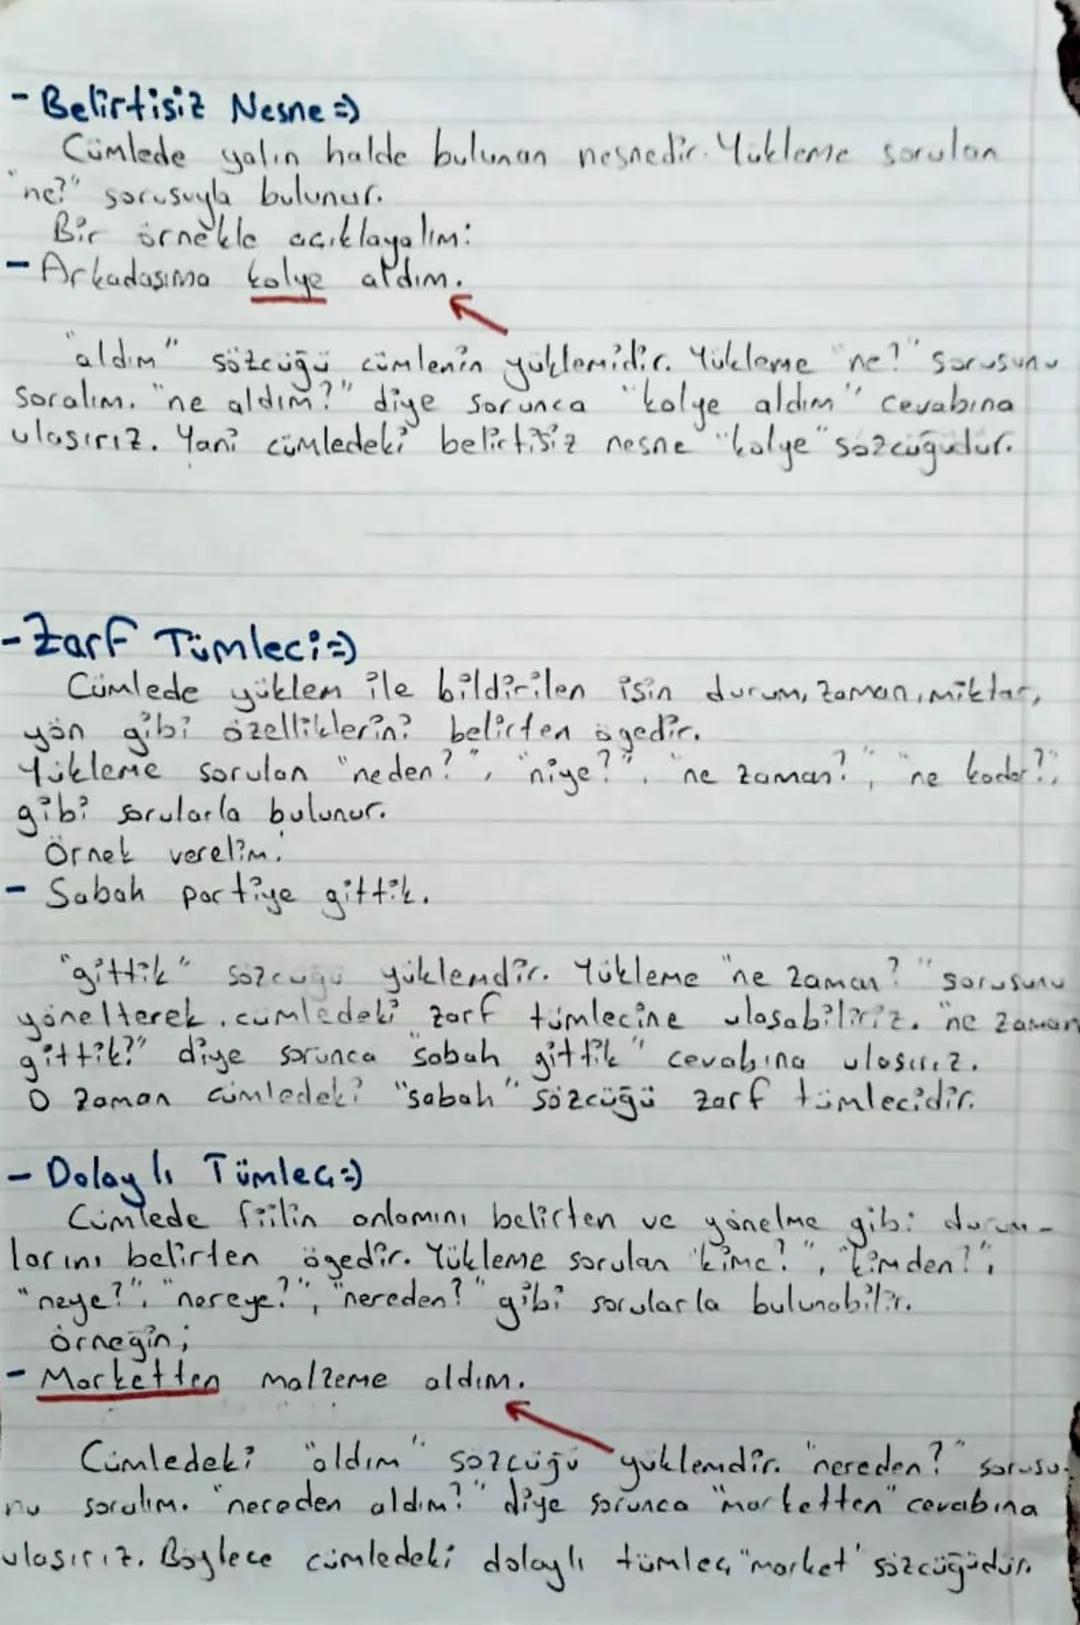 - Belirtisiz Nesne =)
Cümlede yalın halde bulunan nesnedir. Yükleme sorulan
"ne?" sorusuyla bulunur.
Bir örnekle açıklayalım:
- Arkadaşıma kolye aldım.
"aldım" sözcüğü cümlenin yüklemidir. Yükleme "ne?" sorusunu
soralım. "ne aldım?" diye sorunca "kolye aldım" cevabına
ulaşırız. Yani cümledeki belirtisiz nesne "kolye" sözcüğüdür.
- Zarf Tümleci =)
Cümlede yüklem ile bildirilen işin durum, zaman, miktar,
yön gibi özelliklerini belirten ögedir.
Yükleme sorulan "neden?", "niye?", "ne zaman?", "ne kadar?",
gibi sorularla bulunur.
Örnek verelim.
- Sabah partiye gittik.
"gittik" sözcüğü yüklemdir. Yükleme "ne zaman?" sorusunu
yönelterek, cümledeki zarf tümlecine ulaşabiliriz. "ne zaman
gittik?" diye sorunca "sabah gittik" cevabına ulaşırız.
O zaman cümledeki "sabah" sözcüğü zarf tümlecidir.
- Dolaylı Tümleç =)
Cümlede fiilin anlamını belirten ve yönelme gibi durum-
larını belirten ögedir. Yükleme sorulan "kime?", "kimden?",
"neye?", "nereye?", "nereden?" gibi sorularla bulunabilir.
örneğin;
- Marketten malzeme aldım.
Cümledeki "aldım" sözcüğü yüklemdir. "nereden?" sorusu-
nu soralım. "nereden aldım?" diye sorunca "marketten" cevabına
ulaşırız. Böylece cümledeki dolaylı tümleç "market" sözcüğüdür.